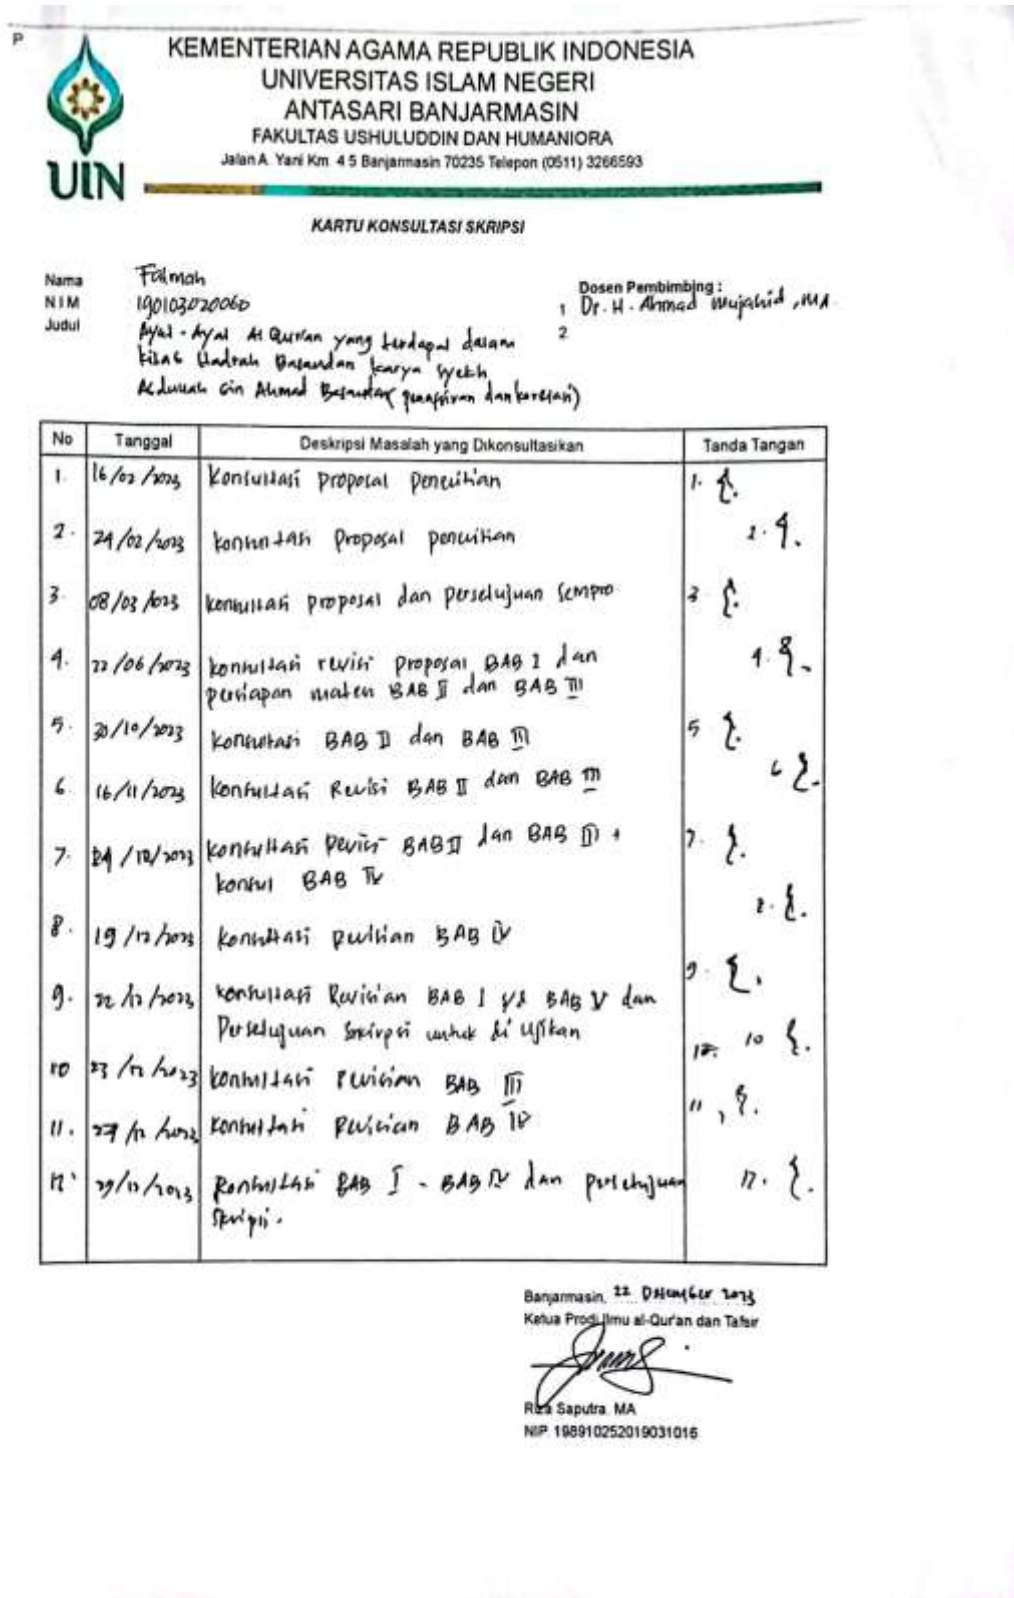 P
KEMENTERIAN AGAMA REPUBLIK INDONESIA
UNIVERSITAS ISLAM NEGERI
ANTASARI BANJARMASIN
FAKULTAS USHULUDDIN DAN HUMANIORA
Jalan A. Yani Km. 4.5 Banjarmasin 70235 Telepon (0511) 3266593
UIN
KARTU KONSULTASI SKRIPSI
Nama Fatmah
NIM 190103020060
Judul Ayat-Ayat Al Qur'an yang terdapat dalam
kitab Hadrah Basaudan karya Syekh
Abdullah bin Ahmad Basaudan (penafsiran dan korelasi)
Dosen Pembimbing :
1 Dr. H. Ahmad Mujahid, MA.
2
No Tanggal Deskripsi Masalah yang Dikonsultasikan Tanda Tangan
1. 16/02/2023 Konsultasi proposal penelitian 1.
2. 24/02/2023 konsultasi proposal penelitian 2.
3. 08/03/2023 konsultasi proposal dan persetujuan Sempro 3
4. 22/06/2023 konsultasi revisi proposal BAB I dan 4.
persiapan materi BAB II dan BAB III
5. 30/10/2023 konsultasi BAB II dan BAB III 5
6. 16/11/2023 konsultasi Revisi BAB II dan BAB III 6
7. /12/2023 konsultasi Revisi BAB II dan BAB III + 7.
konsul BAB IV
8. 19/12/2023 konsultasi revisian BAB IV 8.
9. 22/12/2023 konsultasi Revisian BAB I s/d BAB V dan 9.
Persetujuan Skripsi untuk di Ujikan
10 23/12/2023 konsultasi revisian BAB III 10
11. 27/12/2023 konsultasi Revisian BAB IV 11,
12. 29/12/2023 Konsultasi BAB I - BAB IV dan persetujuan 12.
Skripsi.
Banjarmasin, 22 Desember 2023
Ketua Prodi Ilmu al-Qur'an dan Tafsir
Riza Saputra. MA
NIP. 198910252019031016